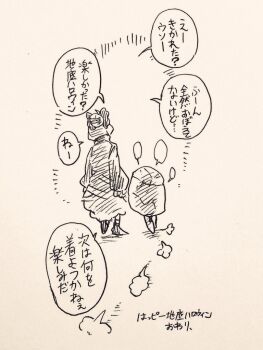 えー
きかれた?
ウソー
楽しかた?
地座ハロウィン
ふーん
全然おぼえて
ないけど…
ねー
次は何を
着よっかねぇ
楽しみだ
はっピー地座ハロウィン
おわり、